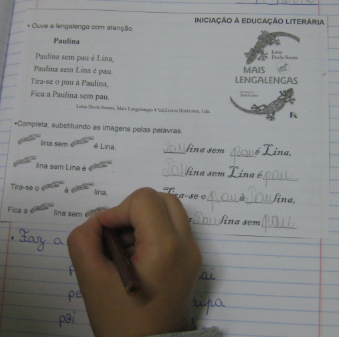 INICIAÇÃO À EDUCAÇÃO LITERÁRIA
• Ouve a lengalenga com atenção.
Paulina
Paulina sem pau é Lina,
Paulina sem Lina é pau.
Tira-se o pau à Paulina,
Fica a Paulina sem pau.
Luísa Ducla Soares, Mais Lengalengas
Luísa
Ducla Soares
MAIS
LENGALENGAS
•Completa, substituindo as imagens pelas palavras.
lina sem é Lina.
lina sem Lina é
Tira-se o à lina,
Fica a lina sem
Paulina sem pau é Lina,
Paulina sem Lina é pau.
Tira-se o pau à Paulina,
Paulina sem pau.
• Faz a